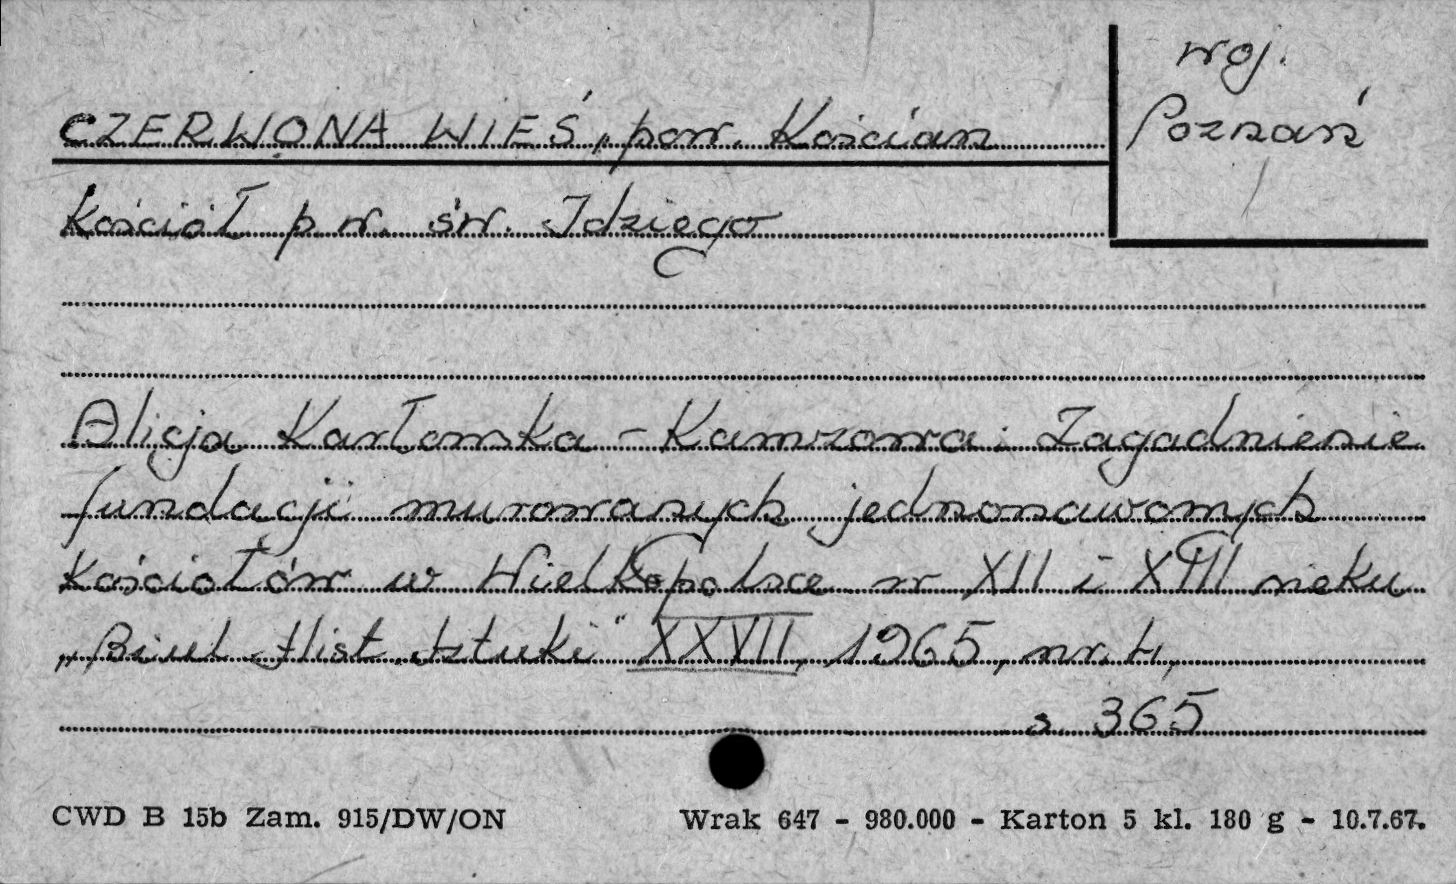 woj.
Poznań
CZERWONA WIEŚ, pow. Kościan
Kościół p.w. św. Idziego
Alicja Karłowska-Kamzowa: Zagadnienie
fundacji murowanych jednonawowych
kościołów w Wielkopolsce w XII i XIII wieku
„Biul. Hist. Sztuki" XXVII, 1965, nr. 4,
s. 365
CWD B 15b Zam. 915/DW/ON Wrak 647 - 980.000 - Karton 5 kl. 180 g - 10.7.67.